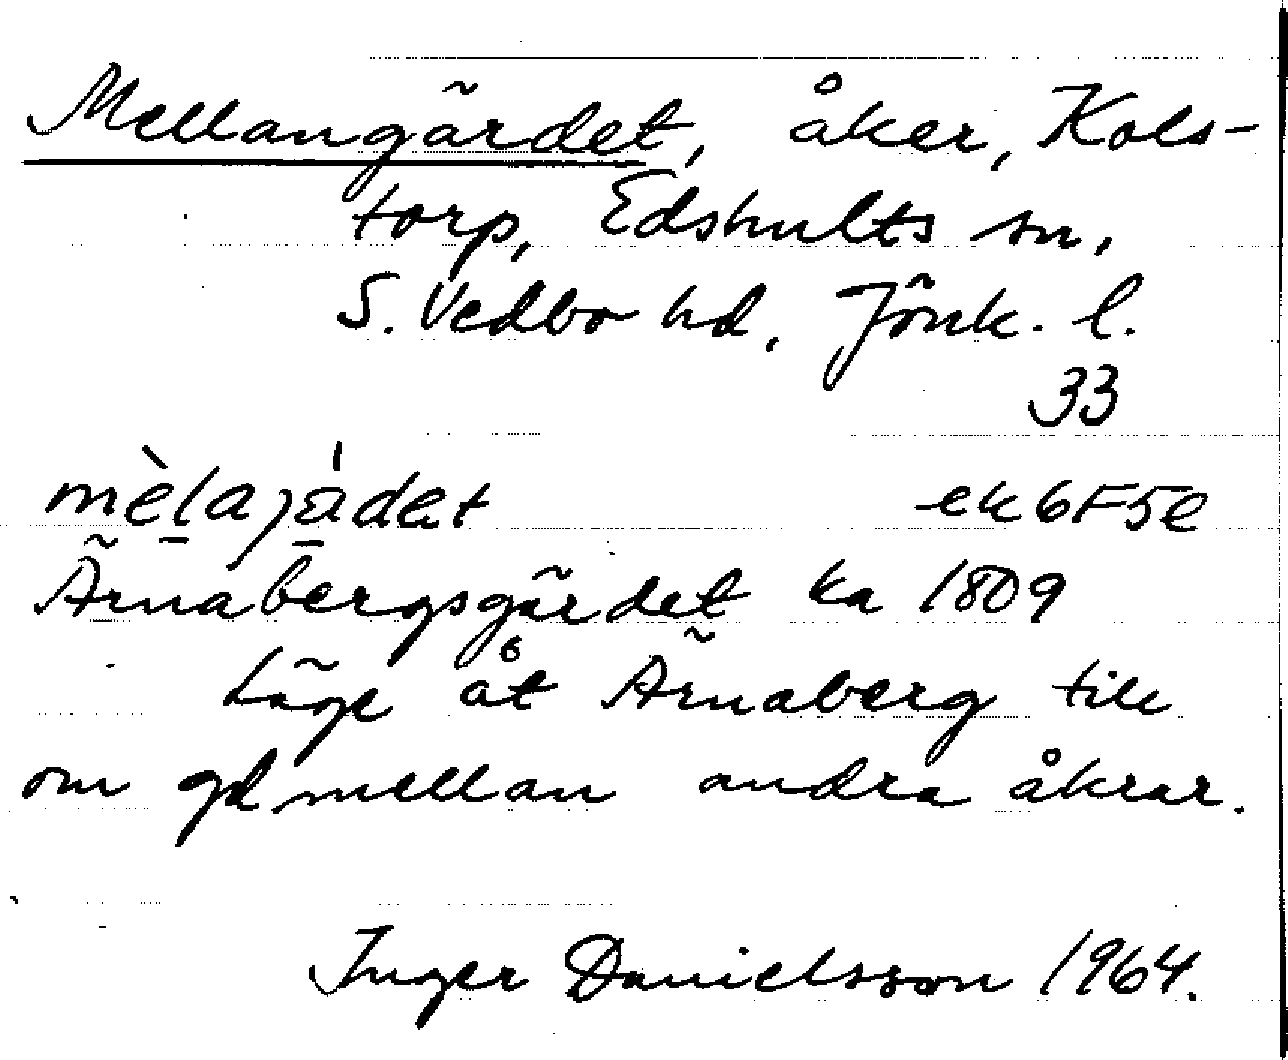 Mellangärdet, åker, Kols-
torp, Edshults sn,
S. Vedbo hd, Jönk. l.
33
mèlajädet ek 6F5e
Ärnabergsgärdet ka 1809
Läge åt Ärnaberg till
om gd, mellan andra åkrar.
Inger Danielsson 1964.